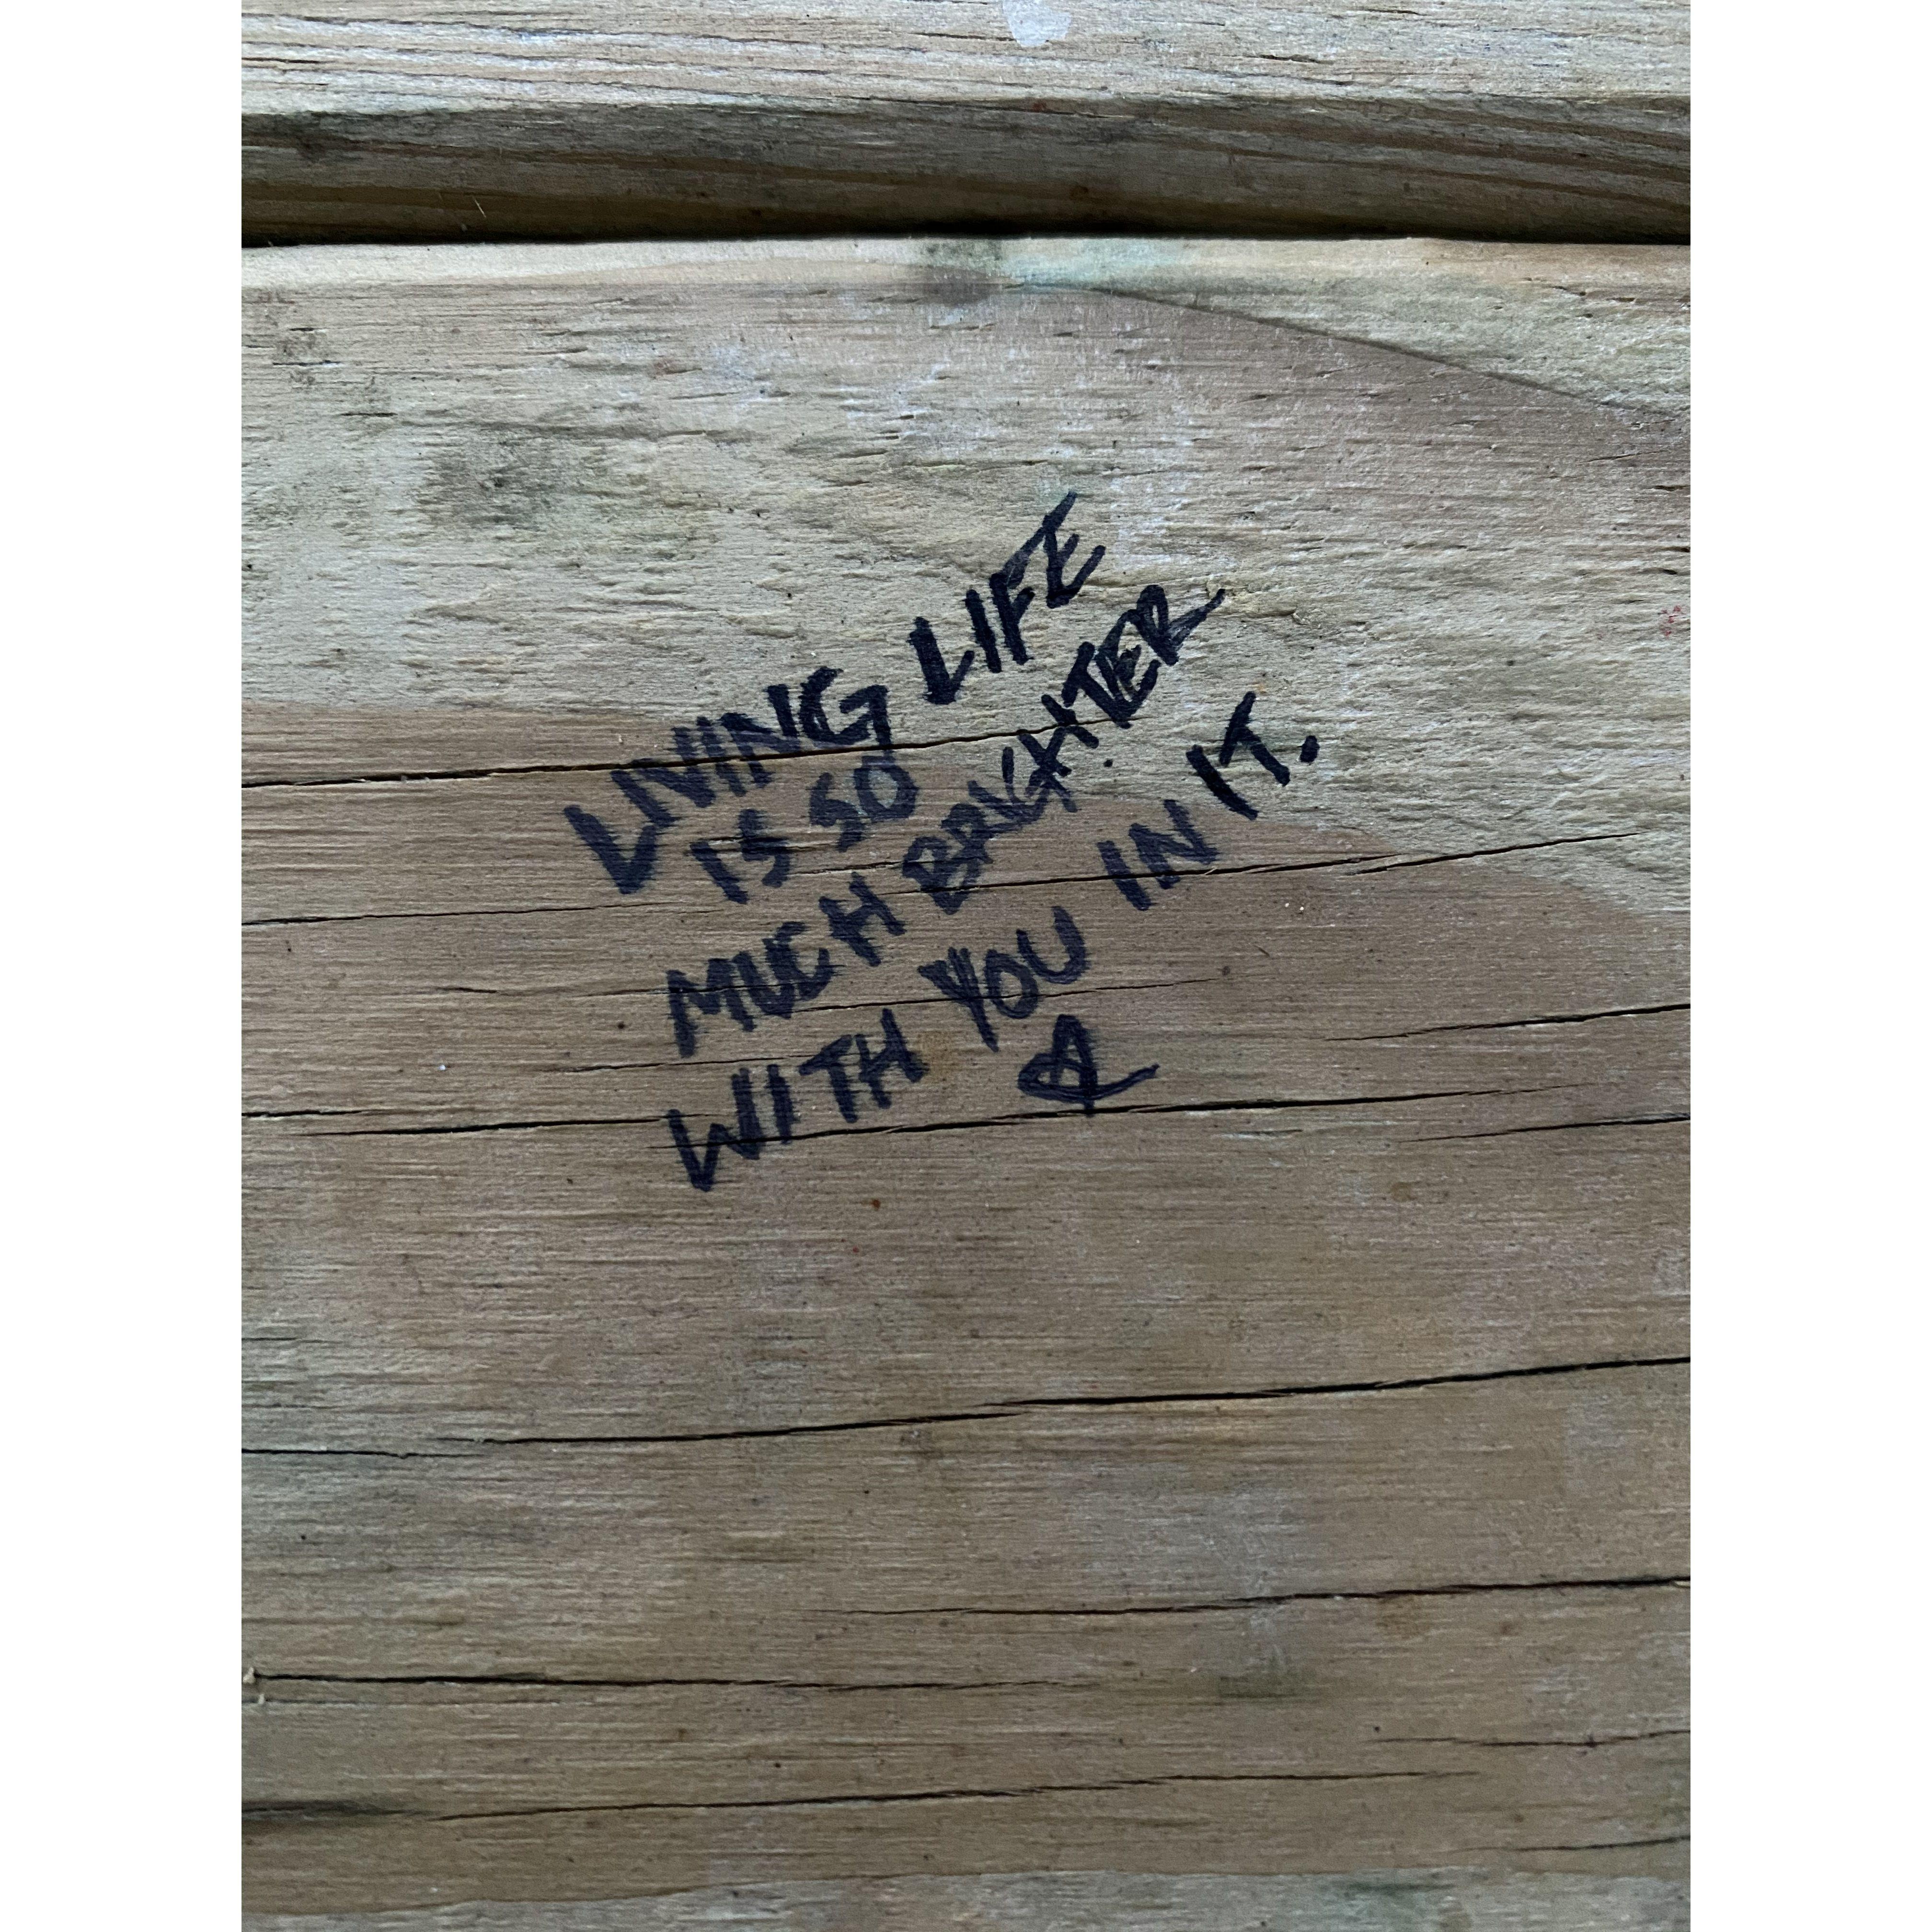 LIVING LIFE
IS SO
MUCH BRIGHTER
WITH YOU IN IT.